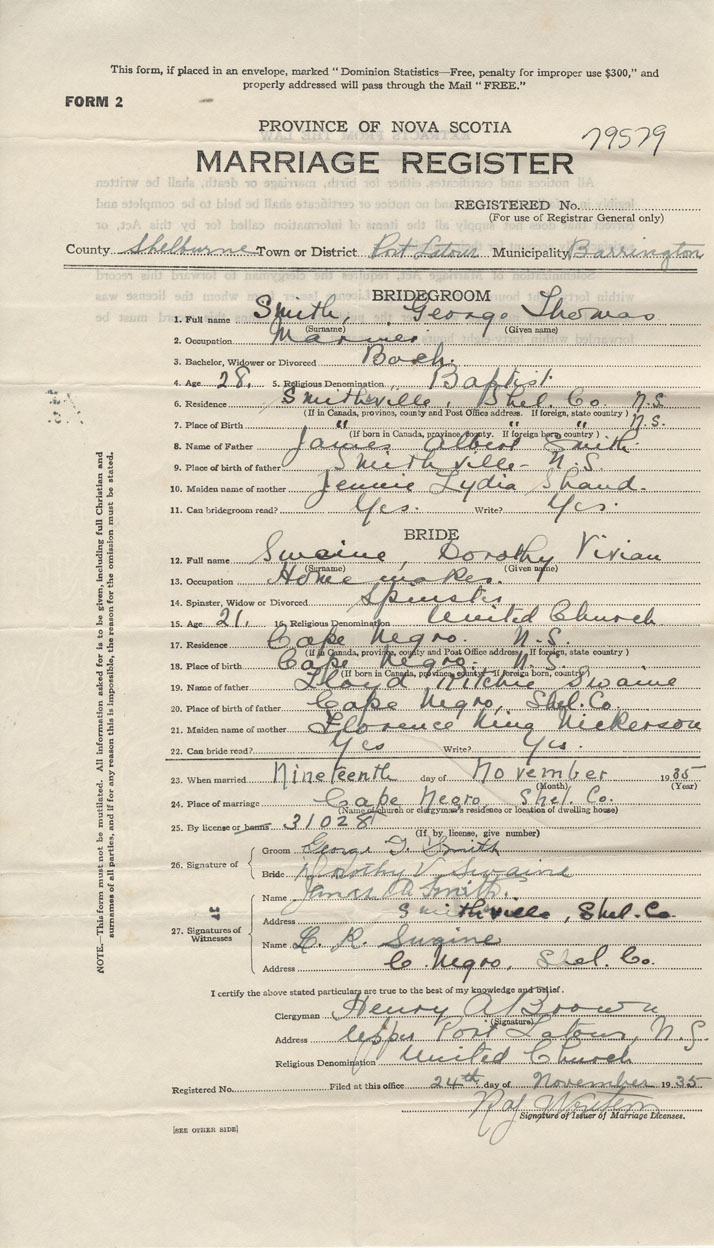 This form, if placed in an envelope, marked "Dominion Statistics—Free, penalty for improper use $300," and
properly addressed will pass through the Mail "FREE."
FORM 2
PROVINCE OF NOVA SCOTIA
79579
MARRIAGE REGISTER
REGISTERED No.
(For use of Registrar General only)
County Shelburne Town or District Port Latour Municipality Barrington
BRIDEGROOM
1. Full name Smith, George Thomas
(Surname) (Given name)
2. Occupation Mariner
3. Bachelor, Widower or Divorced Bach.
4. Age 28. 5. Religious Denomination Baptist
6. Residence Smithville, Shel. Co. N.S.
(If in Canada, province, county and Post Office address. If foreign, state country)
7. Place of Birth " " " N.S.
(If born in Canada, province, county. If foreign born country)
8. Name of Father James Albert Smith.
9. Place of birth of father Smithville - N.S.
10. Maiden name of mother Jennie Lydia Shand.
11. Can bridegroom read? Yes. Write? Yes.
BRIDE
12. Full name Swaine, Dorothy Vivian
(Surname) (Given name)
13. Occupation Home maker.
14. Spinster, Widow or Divorced Spinster
15. Age 21. 16. Religious Denomination United Church
17. Residence Cape Negro. N.S.
(If in Canada, province, county and Post Office address. If foreign, state country)
18. Place of birth Cape Negro. N.S.
(If born in Canada, province, county; if foreign born, country)
19. Name of father Lloyd Ritchie Swaine
20. Place of birth of father Cape Negro, Shel. Co.
21. Maiden name of mother Florence King Nickerson
22. Can bride read? Yes Write? Yes.
23. When married Nineteenth day of November 1935
(Month) (Year)
24. Place of marriage Cape Negro, Shel. Co.
(Name of church or clergyman's residence or location of dwelling house)
25. By license or banns 31028
(If, by license, give number)
26. Signature of
Groom George T. Smith
Bride Dorothy V. Swaine
27. Signatures of Witnesses
Name James A. Smith.
Address Smithville, Shel. Co.
Name L. R. Swaine
Address C. Negro, Shel. Co.
I certify the above stated particulars are true to the best of my knowledge and belief.
Clergyman Henry A Brown
(Signature)
Address Upper Port Latour, N.S.
Religious Denomination United Church
Registered No. Filed at this office 24th day of November 1935
Signature of Issuer of Marriage Licenses.
[SEE OTHER SIDE]
NOTE.—This form must not be mutilated. All information asked for is to be given, including full Christian and
surnames of all parties, and if for any reason this is impossible, the reason for the omission must be stated.